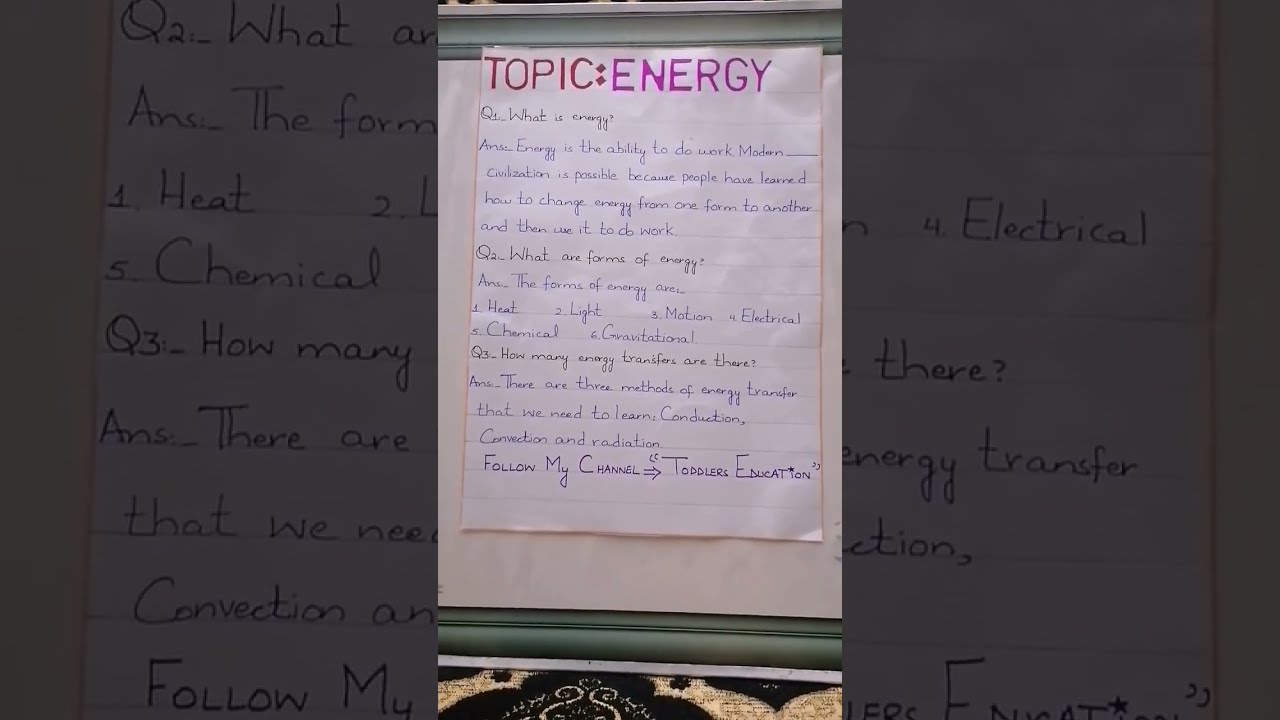 TOPIC:ENERGY
Q1_ What is energy?
Ans:_ Energy is the ability to do work Modern ___
civilization is possible because people have learned
how to change energy from one form to another
and then use it to do work.
Q2:_ What are forms of energy?
Ans:_ The forms of energy are:_
1. Heat 2. Light 3. Motion 4. Electrical
5. Chemical 6. Gravitational.
Q3:_ How many energy transfers are there?
Ans:_ There are three methods of energy transfer
that we need to learn: Conduction,
Convection and radiation.
FOLLOW MY CHANNEL ⇒ "TODDLERS EDUCAT*ON"